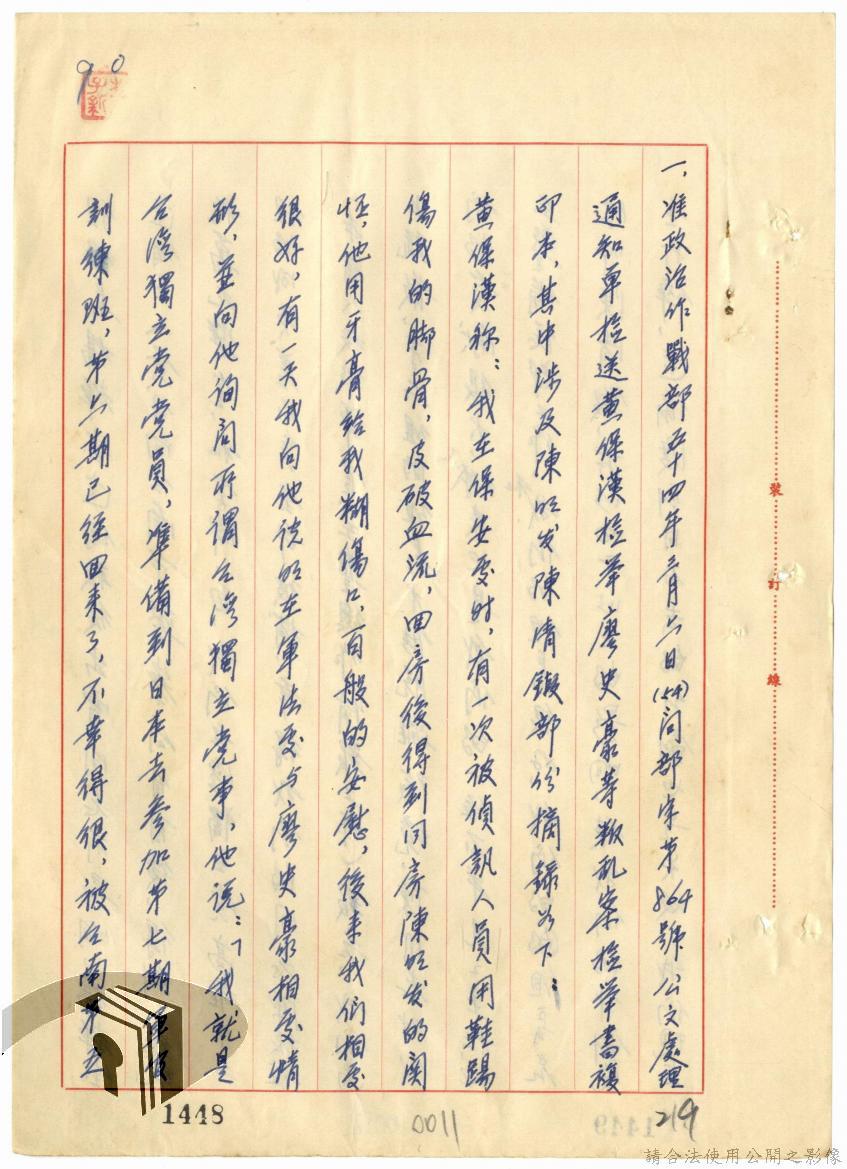 90
一、准政治作戰部五十四年三月六日(54)同部字第864號公文處理
通知單檢送黃保漢檢举廖史豪等叛乱案檢举書複
印本，其中涉及陳旺发陳清鍛部份摘錄以下：
黄保漢称：我在保安處时，有一次被偵訊人員用鞋踢
傷我的脚骨，皮破血流，回房後得到同房陳旺发的関
怀，他用牙膏給我糊傷口，百般的安慰，後来我們相處
很好，有一天我向他说明在軍法處与廖史豪相處情
形，並向他询问所謂台湾獨立党事，他说：「我就是
台湾獨立党党員，準備到日本去参加第七期
訓練班，第六期已經回来了，不幸得很，被台南第五
裝訂線
1448
0011
219
請合法使用公開之影像